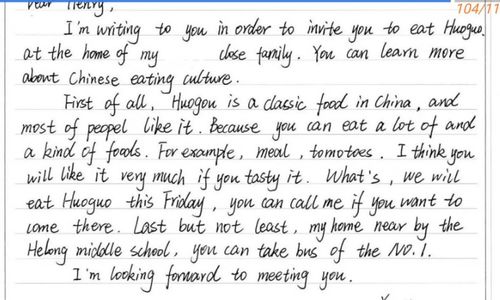 104/11
Dear Henry,
I'm writing to you in order to invite you to eat Huoguo.
at the home of my close family. You can learn more
about Chinese eating culture.
First of all, Huogou is a classic food in China, and
most of peopel like it. Because you can eat a lot of and
a kind of foods. For example, meal, tomotoes. I think you
will like it very much if you tasty it. What's, we will
eat Huoguo this Friday, you can call me if you want to
come there. Last but not least, my home near by the
Helong middle school, you can take bus of the NO.1.
I'm looking forward to meeting you.